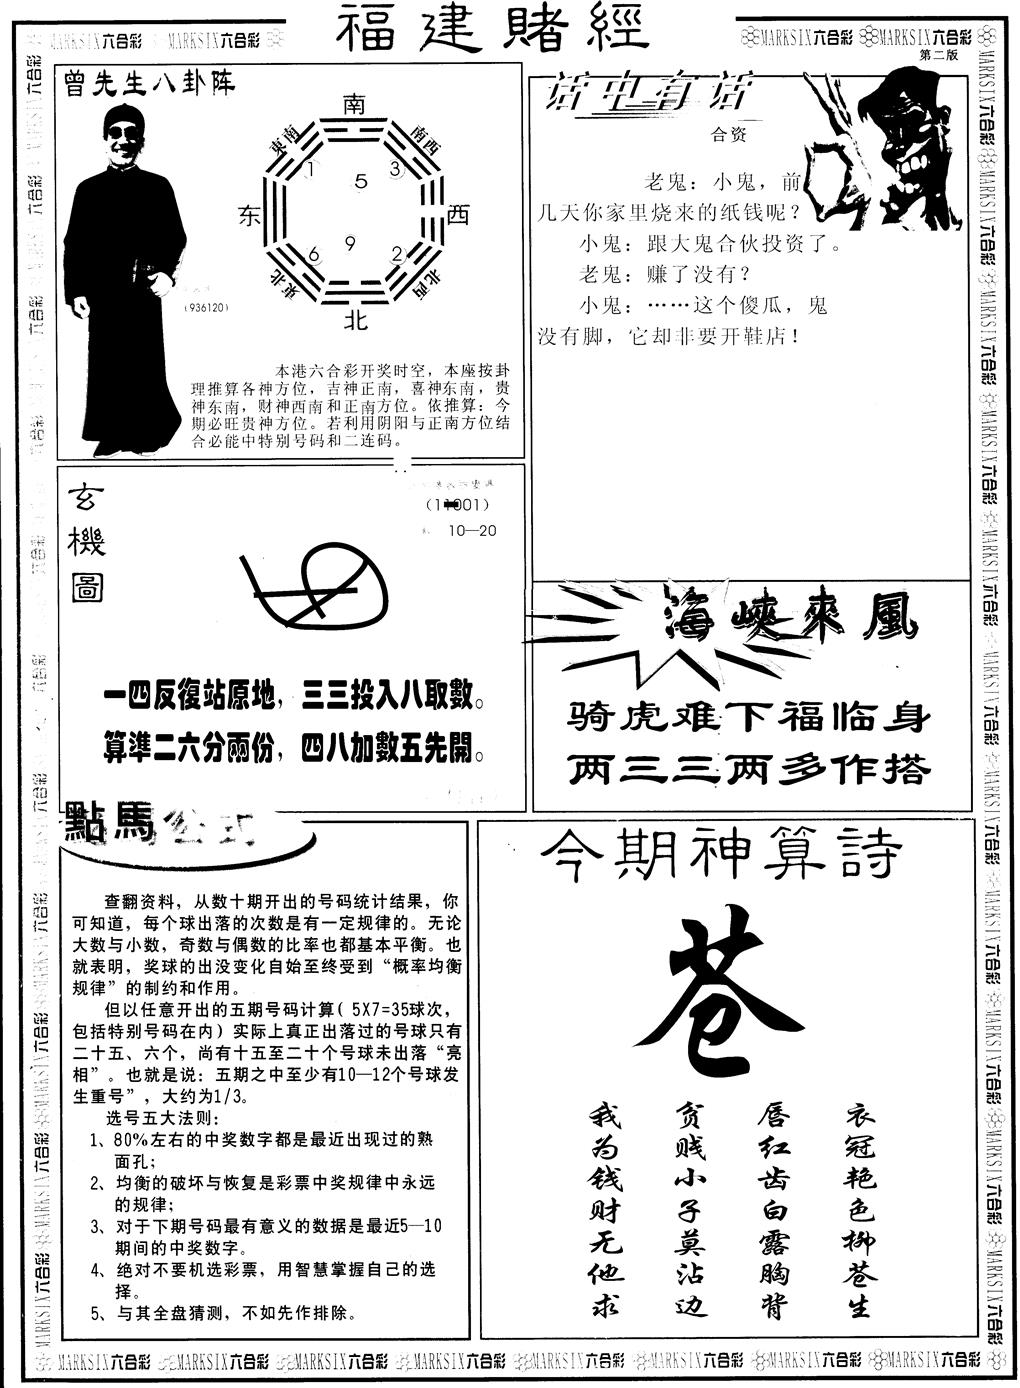 福建赌經
MARKSIX六合彩 MARKSIX六合彩
MARKSIX六合彩 MARKSIX六合彩
第二版
曾先生八卦阵
南
東南 南西
1 5 3
东 西
6 9 2
東北 北西
北
(936120)
本港六合彩开奖时空，本座按卦
理推算各神方位，吉神正南，喜神东南，贵
神东南，财神西南和正南方位。依推算：今
期必旺贵神方位。若利用阴阳与正南方位结
合必能中特别号码和二连码。
话中有话
合资
老鬼：小鬼，前
几天你家里烧来的纸钱呢？
小鬼：跟大鬼合伙投资了。
老鬼：赚了没有？
小鬼：……这个傻瓜，鬼
没有脚，它却非要开鞋店！
玄機圖
10—20
一四反復站原地，三三投入八取數。
算準二六分兩份，四八加數五先開。
海峽來風
骑虎难下福临身
两三三两多作搭
點馬公式
查翻资料，从数十期开出的号码统计结果，你
可知道，每个球出落的次数是有一定规律的。无论
大数与小数，奇数与偶数的比率也都基本平衡。也
就表明，奖球的出没变化自始至终受到“概率均衡
规律”的制约和作用。
但以任意开出的五期号码计算(5X7=35球次，
包括特别号码在内)实际上真正出落过的号球只有
二十五、六个，尚有十五至二十个号球未出落“亮
相”。也就是说：五期之中至少有10—12个号球发
生重号”，大约为1/3。
选号五大法则：
1、80%左右的中奖数字都是最近出现过的熟
面孔；
2、均衡的破坏与恢复是彩票中奖规律中永远
的规律；
3、对于下期号码最有意义的数据是最近5—10
期间的中奖数字。
4、绝对不要机选彩票，用智慧掌握自己的选
择。
5、与其全盘猜测，不如先作排除。
今期神算詩
苍
衣冠艳色柳苍生
唇红齿白露胸背
贫贱小子莫沾边
我为钱财无他求
MARKSIX六合彩 MARKSIX六合彩 MARKSIX六合彩 MARKSIX六合彩 MARKSIX六合彩 MARKSIX六合彩 MARKSIX六合彩 MARKSIX六合彩